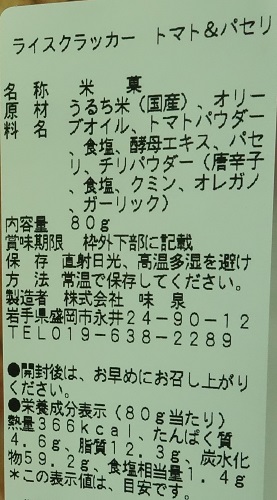 ライスクラッカー　トマト＆パセリ
名　称　米　菓
原　材　うるち米（国産）、オリー
料　名　ブオイル、トマトパウダー
、食塩、酵母エキス、パセ
リ、チリパウダー（唐辛子
、食塩、クミン、オレガノ
、ガーリック）
内容量　８０ｇ
賞味期限　枠外下部に記載
保　存　直射日光、高温多湿を避け
方　法　常温で保存してください。
製造者　株式会社　味　泉
岩手県盛岡市永井２４－９０－１２
ＴＥＬ０１９－６３８－２２８９
●開封後は、お早めにお召し上がり
ください。
●栄養成分表示（８０ｇ当たり）
熱量３６６ｋｃａｌ、たんぱく質
４．６ｇ、脂質１２．３ｇ、炭水化
物５９．２ｇ、食塩相当量１．４ｇ
＊この表示値は、目安です。